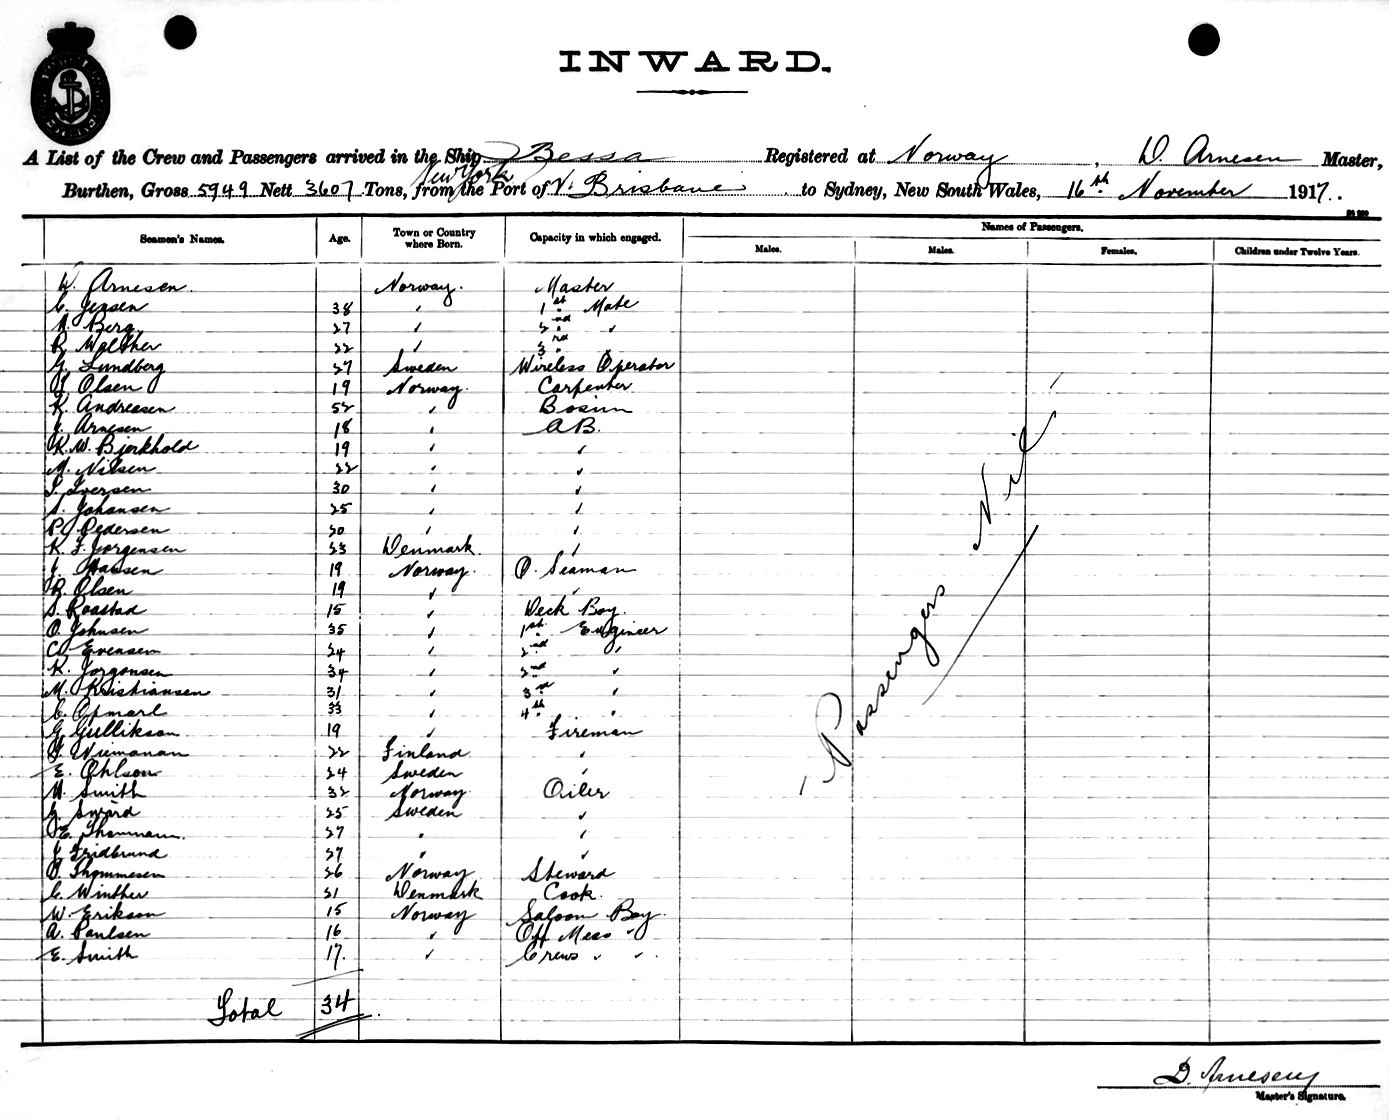 INWARD.
A List of the Crew and Passengers arrived in the Ship Bessa Registered at Norway, D. Arnesen Master,
New York
Burthen, Gross 5949 Nett 3607 Tons, from the Port of V. Brisbane to Sydney, New South Wales, 16th November 1917.
Seamen's Names. Age. Town or Country where Born. Capacity in which engaged. Names of Passengers.
Males. Males. Females. Children under Twelve Years.
D. Arnesen. Norway. Master
C. Jensen 38 " 1st Mate
Berg 27 " 2nd "
R. Walther 22 " 3rd "
G. Lundberg 27 Sweden Wireless Operator
Olsen 19 Norway. Carpenter
K. Andresen 52 " Bosun
J. Arnesen 18 " A.B.
K. W. Bjerkhold 19 " "
M. Nilsen 22 " "
Iversen 30 " "
S. Johansen 25 " "
P. Pedersen 20 " "
K. F. Jorgensen 23 Denmark. "
J. Hansen 19 Norway. O. Seaman
R. Olsen 19 " "
S. Roastad 15 " Deck Boy.
O. Johnsen 35 " 1st Engineer
C. Evensen 24 " 2nd "
K. Jorgensen 34 " 2nd "
M. Kristiansen 31 " 3rd "
C. Opmarl 33 " 4th "
G. Gullikson 19 " Fireman
Niemanan 22 Finland "
E. Ohlson 24 Sweden "
Smith 32 Norway. Oiler
G. Swärd 25 Sweden "
E. Thanmann. 27 " "
J. Fridbrund 27 " "
Thommesen 26 Norway Steward
C. Winther 21 Denmark Cook.
W. Erikson 15 Norway Saloon Boy.
A. Paulsen 16 " Off Mess "
E. Smith 17. " Crews " "
Passengers Nil
Total 34
D. Arnesen
Master's Signature.